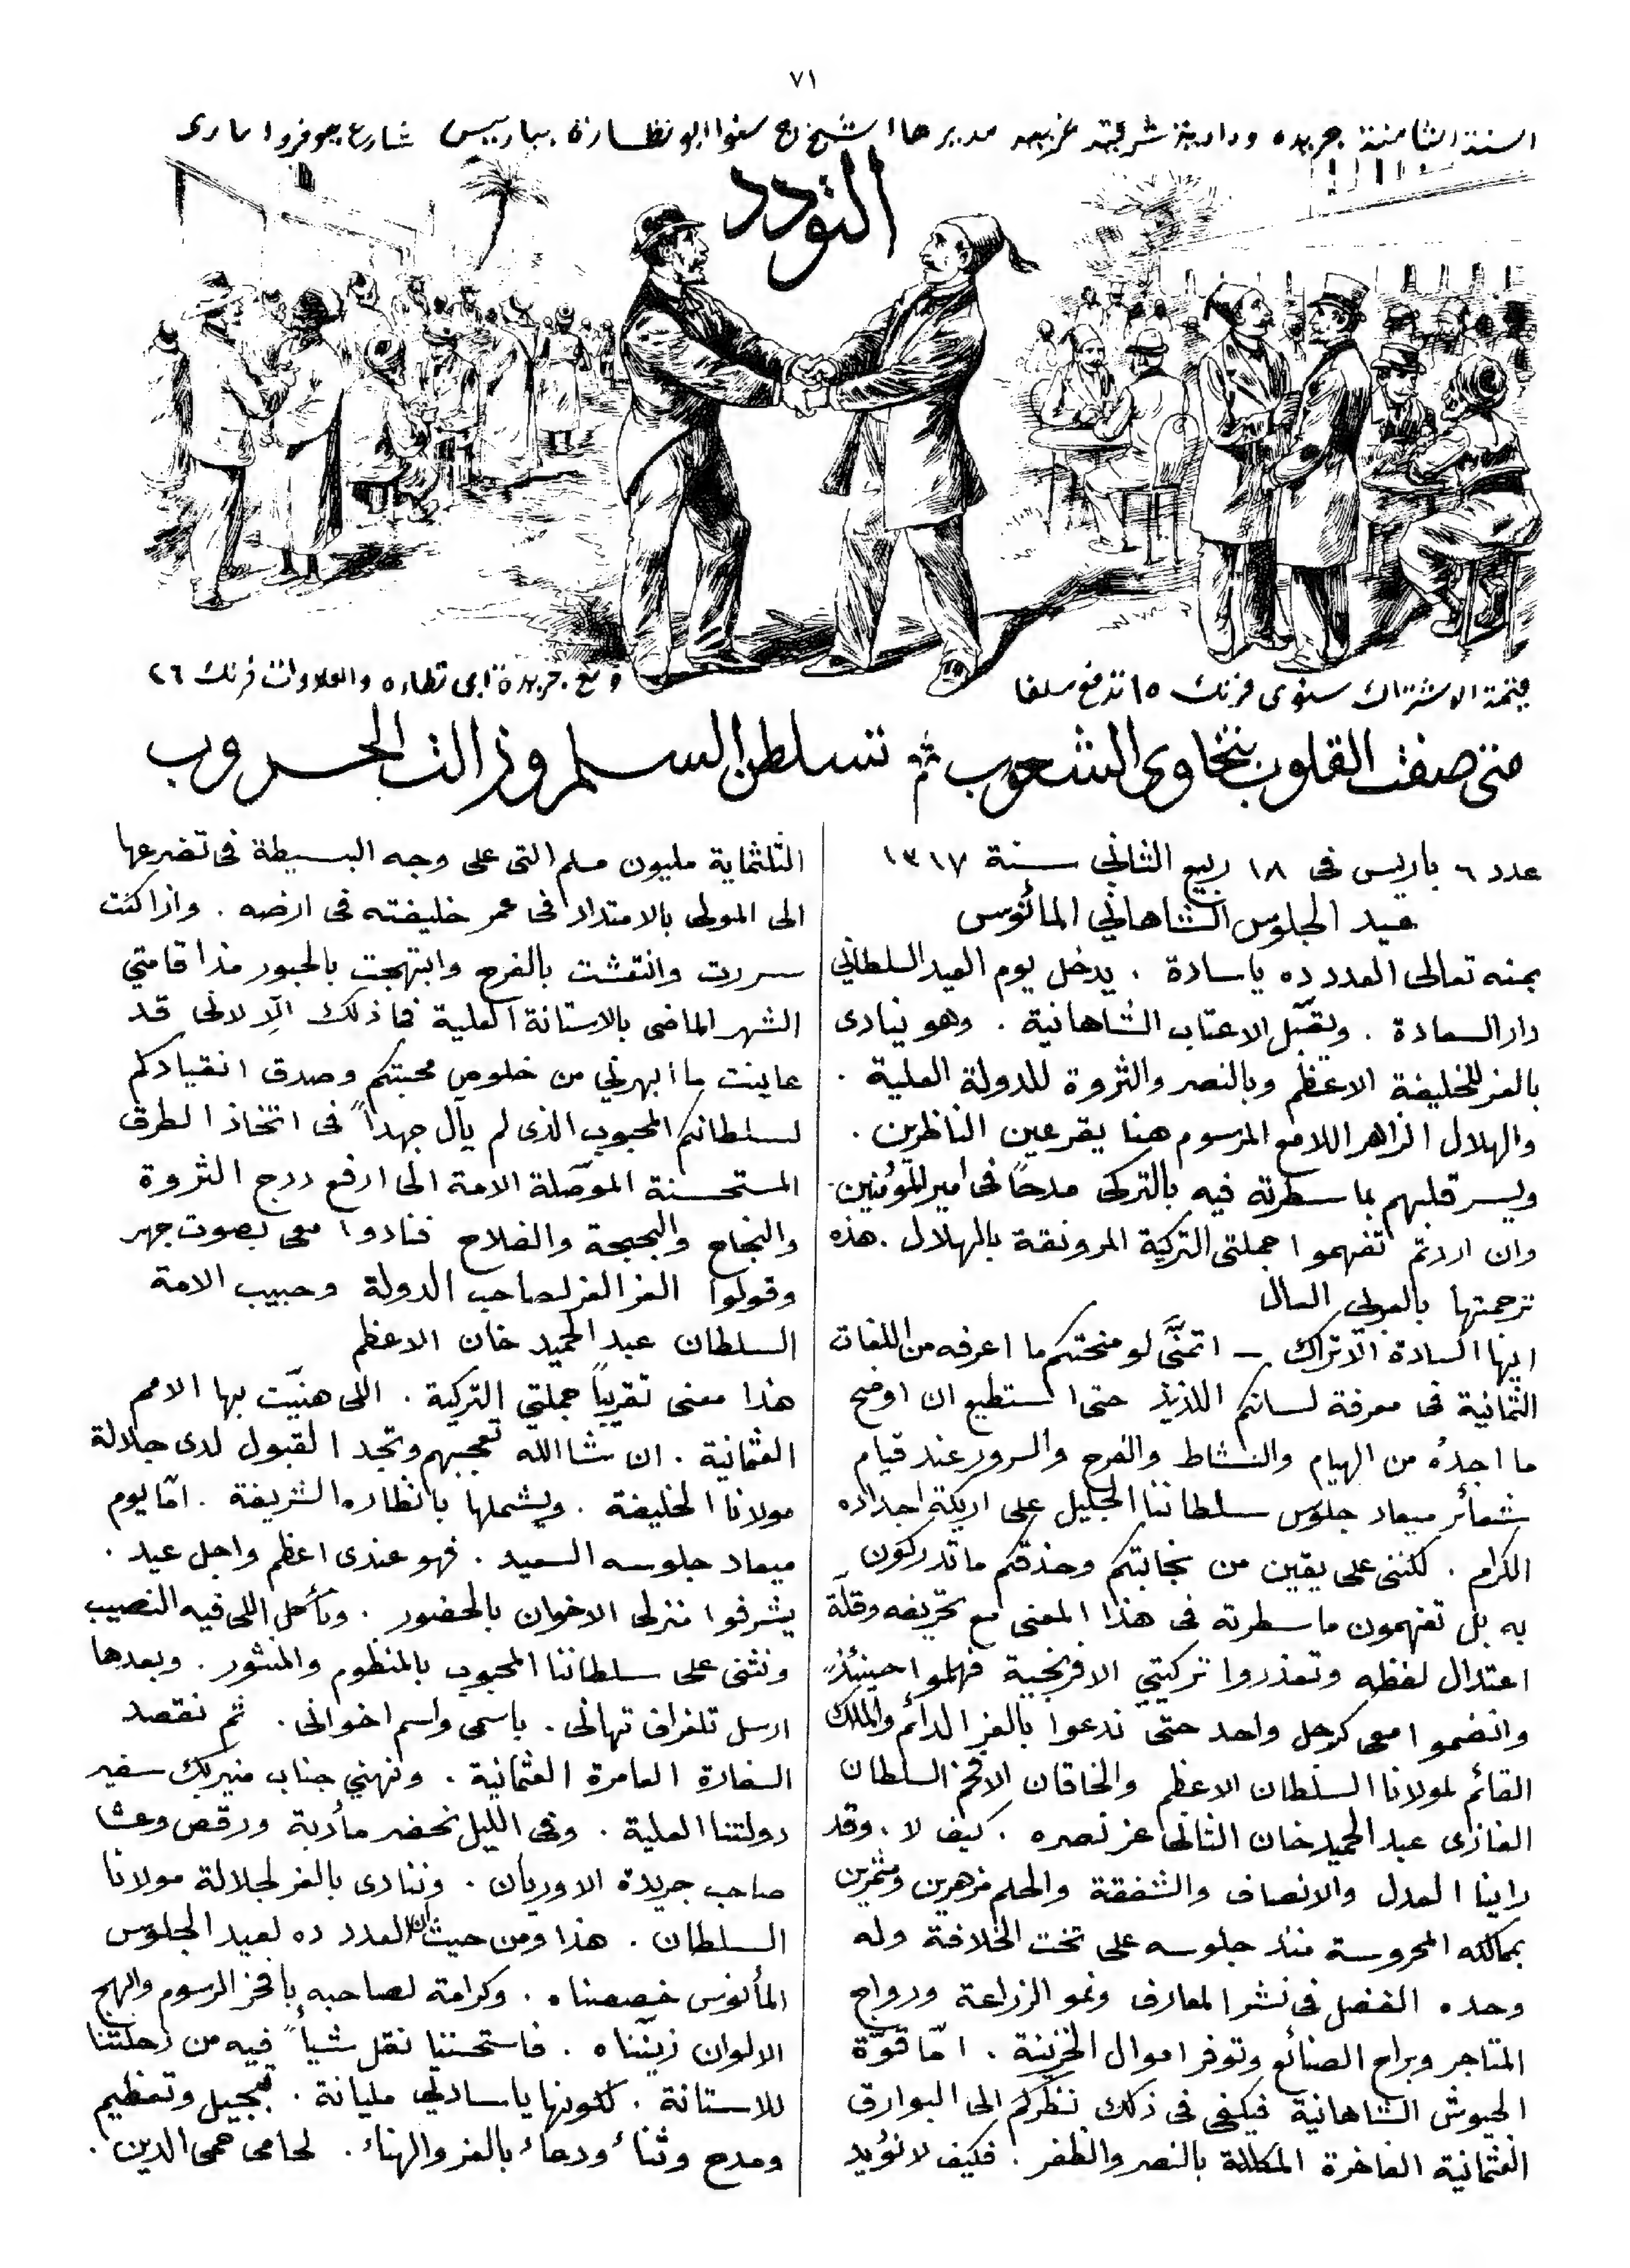 ٧١
السنة الثامنة جريدة ودادية شرقية غربية مديرها الشيخ ج سنوا ابو نظارة بباريس شارع جوفروا مارى
التودد
قيمة الاشتراك سنوى فرنك ١٥ تدفع سلفا
ومع جريدة ابى نظاره والعلاوات فرنك ٢٦
متى صفت القلوب بتخاوى الشعوب ثم تسلطن السلم وزالت الحروب
عدد ٦ باريس فى ١٨ ربيع الثاني سنة ١٣١٧
عيد الجلوس الشاهاني المأنوس
بمنه تعالى العدد ده ياسادة . يدخل يوم العيد السلطاني
دار السعادة . ويقبّل الاعتاب الشاهانية . وهو ينادى
بالعز للخليفة الاعظم وبالنصر والثروة للدولة العلية .
والهلال الزاهر اللامع المرسوم هنا يقر عين الناظرين .
ويسر قلبهم بما سطرته فيه بالتركى مدحاً فى امير المؤمنين .
وان اردتم تفهموا جملتى التركية المرونقة بالهلال . هذه
ترجمتها بالعربى العال
ايها السادة الاتراك – اتمنّى لو منحتكم ما اعرفه من اللغات
الثمانية فى معرفة لسانكم اللذيذ حتى استطيع ان اوضح
ما اجدهُ من الهيام والنشاط والفرح والسرور عند قيام
شعائر ميعاد جلوس سلطاننا الجليل على اريكة اجداده
الكرام . لكننى على يقين من نجابتكم وحذقكم ما تدركون
به بل تفهمون ما سطرته فى هذا المعنى مع تحريفه وقلّة
اعتدال لفظه وتعذروا تركيتي الافرنجية فهلموا حينئذٍ
وانضموا معى كرجل واحد حتى ندعوا بالعز الدائم والملك
القائم لمولانا السلطان الاعظم والخاقان الافخم السلطان
الغازى عبد الحميد خان الثانى عز نصره . كيف لا . وقد
راينا العدل والانصاف والشفقة والحلم مزهرين ومثمرين
بممالكه المحروسة منذ جلوسه على تخت الخلافة وله
وحده الفضل فى نشر المعارف ونمو الزراعة ورواج
المتاجر وبراح الصنائع وتوفر اموال الخزينة . امّا قوّة
الجيوش الشاهانية فيكفى فى ذلك نظركم الى البوارق
العثمانية الفاخرة المكللة بالنصر والظفر . فكيف لا نؤيد
الثلثماية مليون مسلم التى على وجه البسيطة فى تضرعها
الى المولى بالامتداد فى عمر خليفته فى ارضه . واذا كنت
سررت وانتعشت بالفرح وابتهجت بالحبور مذ اقامتي
الشهر الماضى بالاستانة العلية فما ذلك الّا لانى قد
عاينت ما ابهرني من خلوص محبتكم وصدق انقيادكم
لسلطانكم المحبوب الذى لم يأل جهداً فى اتخاذ الطرق
المستحسنة الموصّلة الامة الى ارفع درج الثروة
والنجاح والبحبحة والفلاح فنادوا معى بصوت جهر
وقولوا العز العز لصاحب الدولة وحبيب الامة
السلطان عبد الحميد خان الاعظم
هذا معنى تقريباً جملتي التركية . اللى هنيّت بها الامم
العثمانية . ان شا الله تعجبهم وتجد القبول لدى جلالة
مولانا الخليفة . ويشملها بانظاره الشريفة . امّا يوم
ميعاد جلوسه السعيد . فهو عندى اعظم واجل عيد .
يشرفوا منزلى الاخوان بالحضور . ونأكل اللى فيه النصيب
ونثنى على سلطاننا المحبوب بالمنظوم والمنثور . وبعدها
ارسل تلغراف تهانى . باسمى واسم اخوانى . ثم نقصد
السفارة العامرة العثمانية . ونهني جناب منير بك سفير
دولتنا العلية . وفى الليل نحضر مأدبة ورقص وعشا
صاحب جريدة الاوريان . وننادى بالعز لجلالة مولانا
السلطان . هذا ومن حيث ان العدد ده لعيد الجلوس
المأنوس خصصناه . وكرامة لصاحبه بافخر الرسوم وابهج
الالوان زينّناه . فاستحسننا نقل شيأً فيه من رحلتنا
للاستانة . لكونها ياسادتي مليانة . بتبجيل وتعظيم
ومدح وثناء ودعاء بالعز والهناء . لحامى حمى الدين .